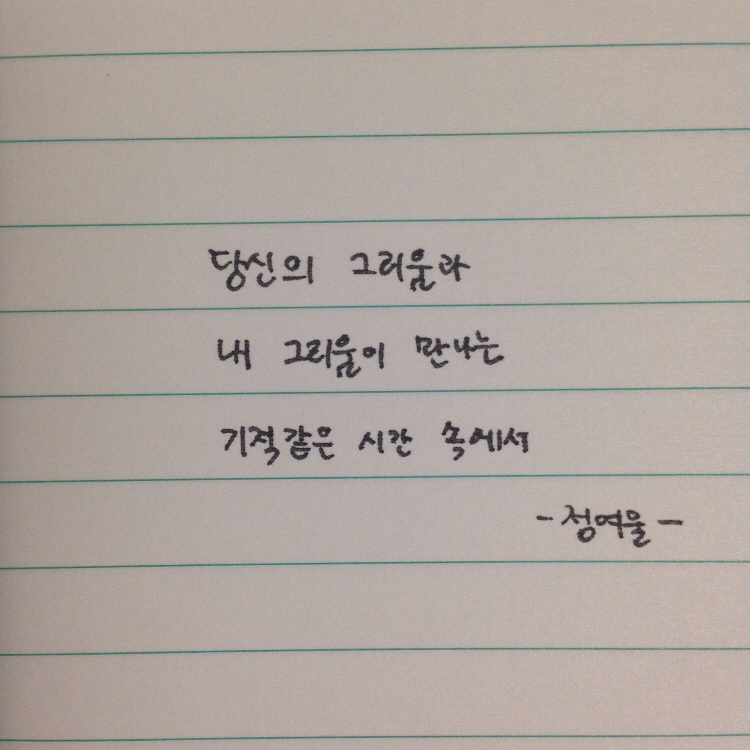 당신의 그리움과
내 그리움이 만나는
기적같은 시간 속에서
-정여울-